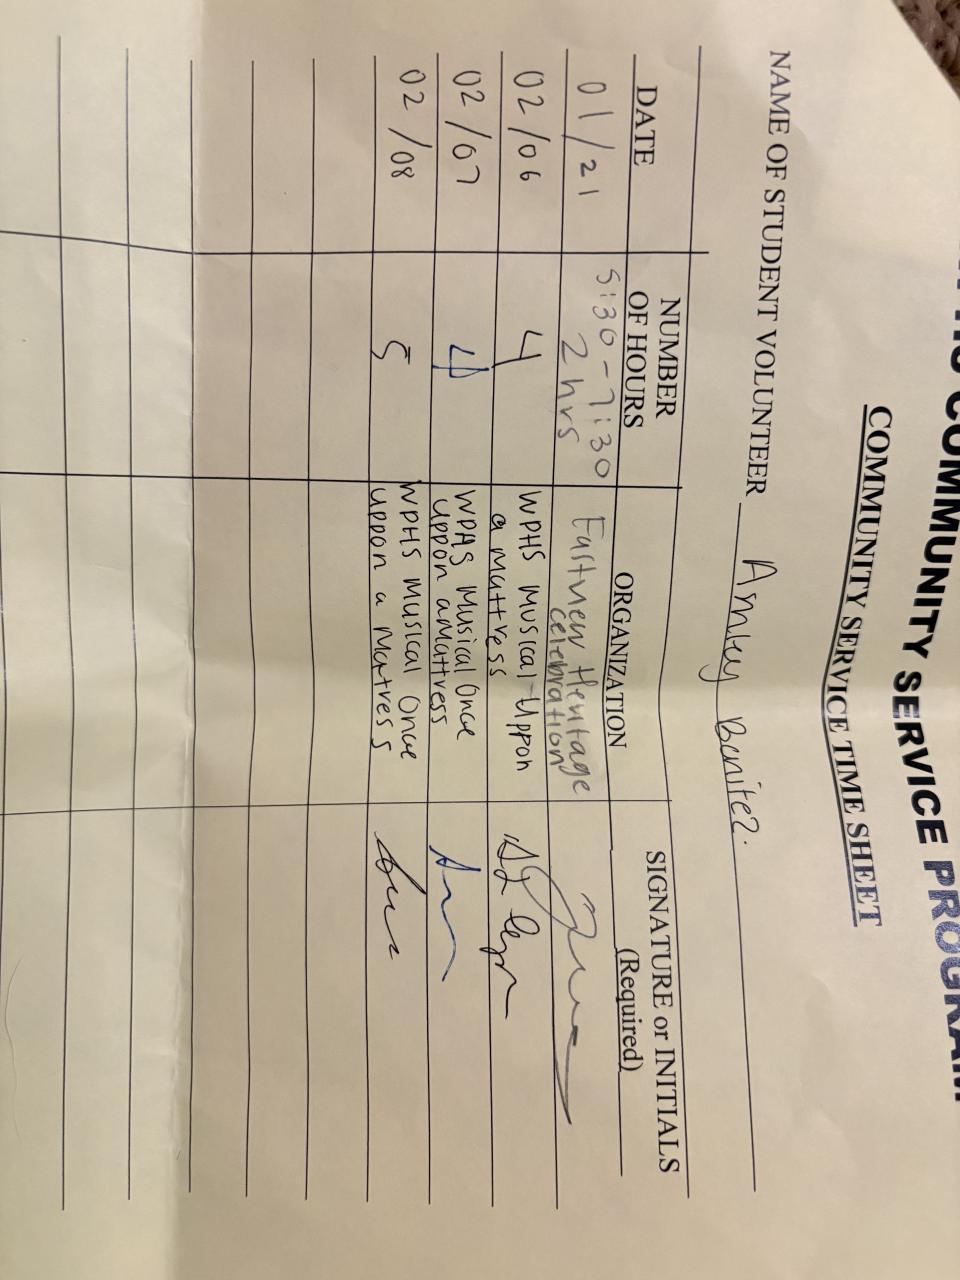 COMMUNITY SERVICE PROGRAM
COMMUNITY SERVICE TIME SHEET
NAME OF STUDENT VOLUNTEER
DATE NUMBER OF HOURS ORGANIZATION SIGNATURE or INITIALS (Required)
01/21 5:30-7:30 Heritage
2 hrs celebration
02/06 4 WPHS Musical-Uppon
a Mattress
02/07 4 WPHS Musical Once
Uppon a Mattress
02/08 5 WPHS Musical Once
Uppon a Matress